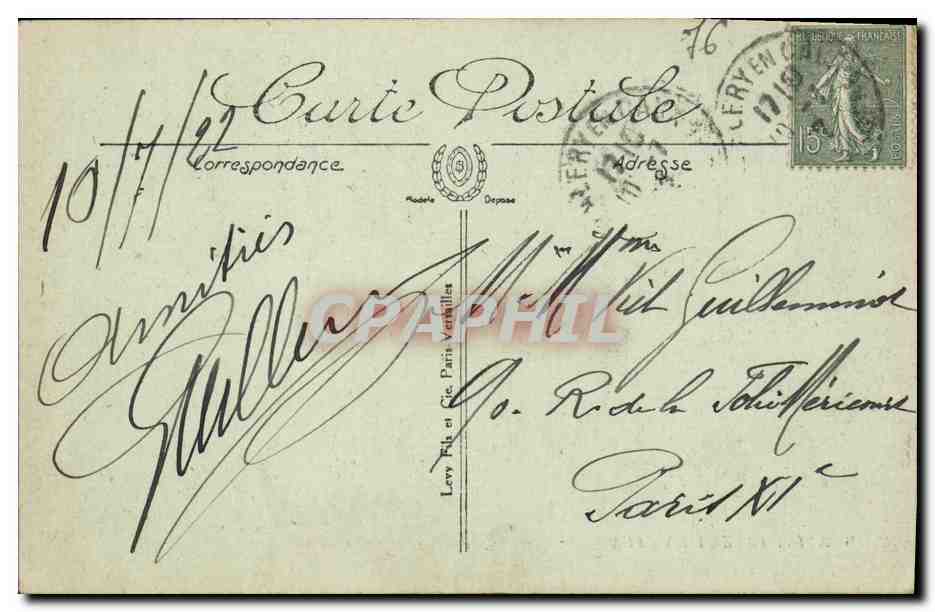 76
REPUBLIQUE FRANÇAISE
15c
POSTES
17
Carte Postale
Correspondance
Adresse
Modèle Déposé
10/7/22
Amitiés
Levy Fils et Cie, Paris-Versailles
CPAPHIL
M. Mme Vict Guilleminot
90. R. de la Folie Méricourt
Paris XIe